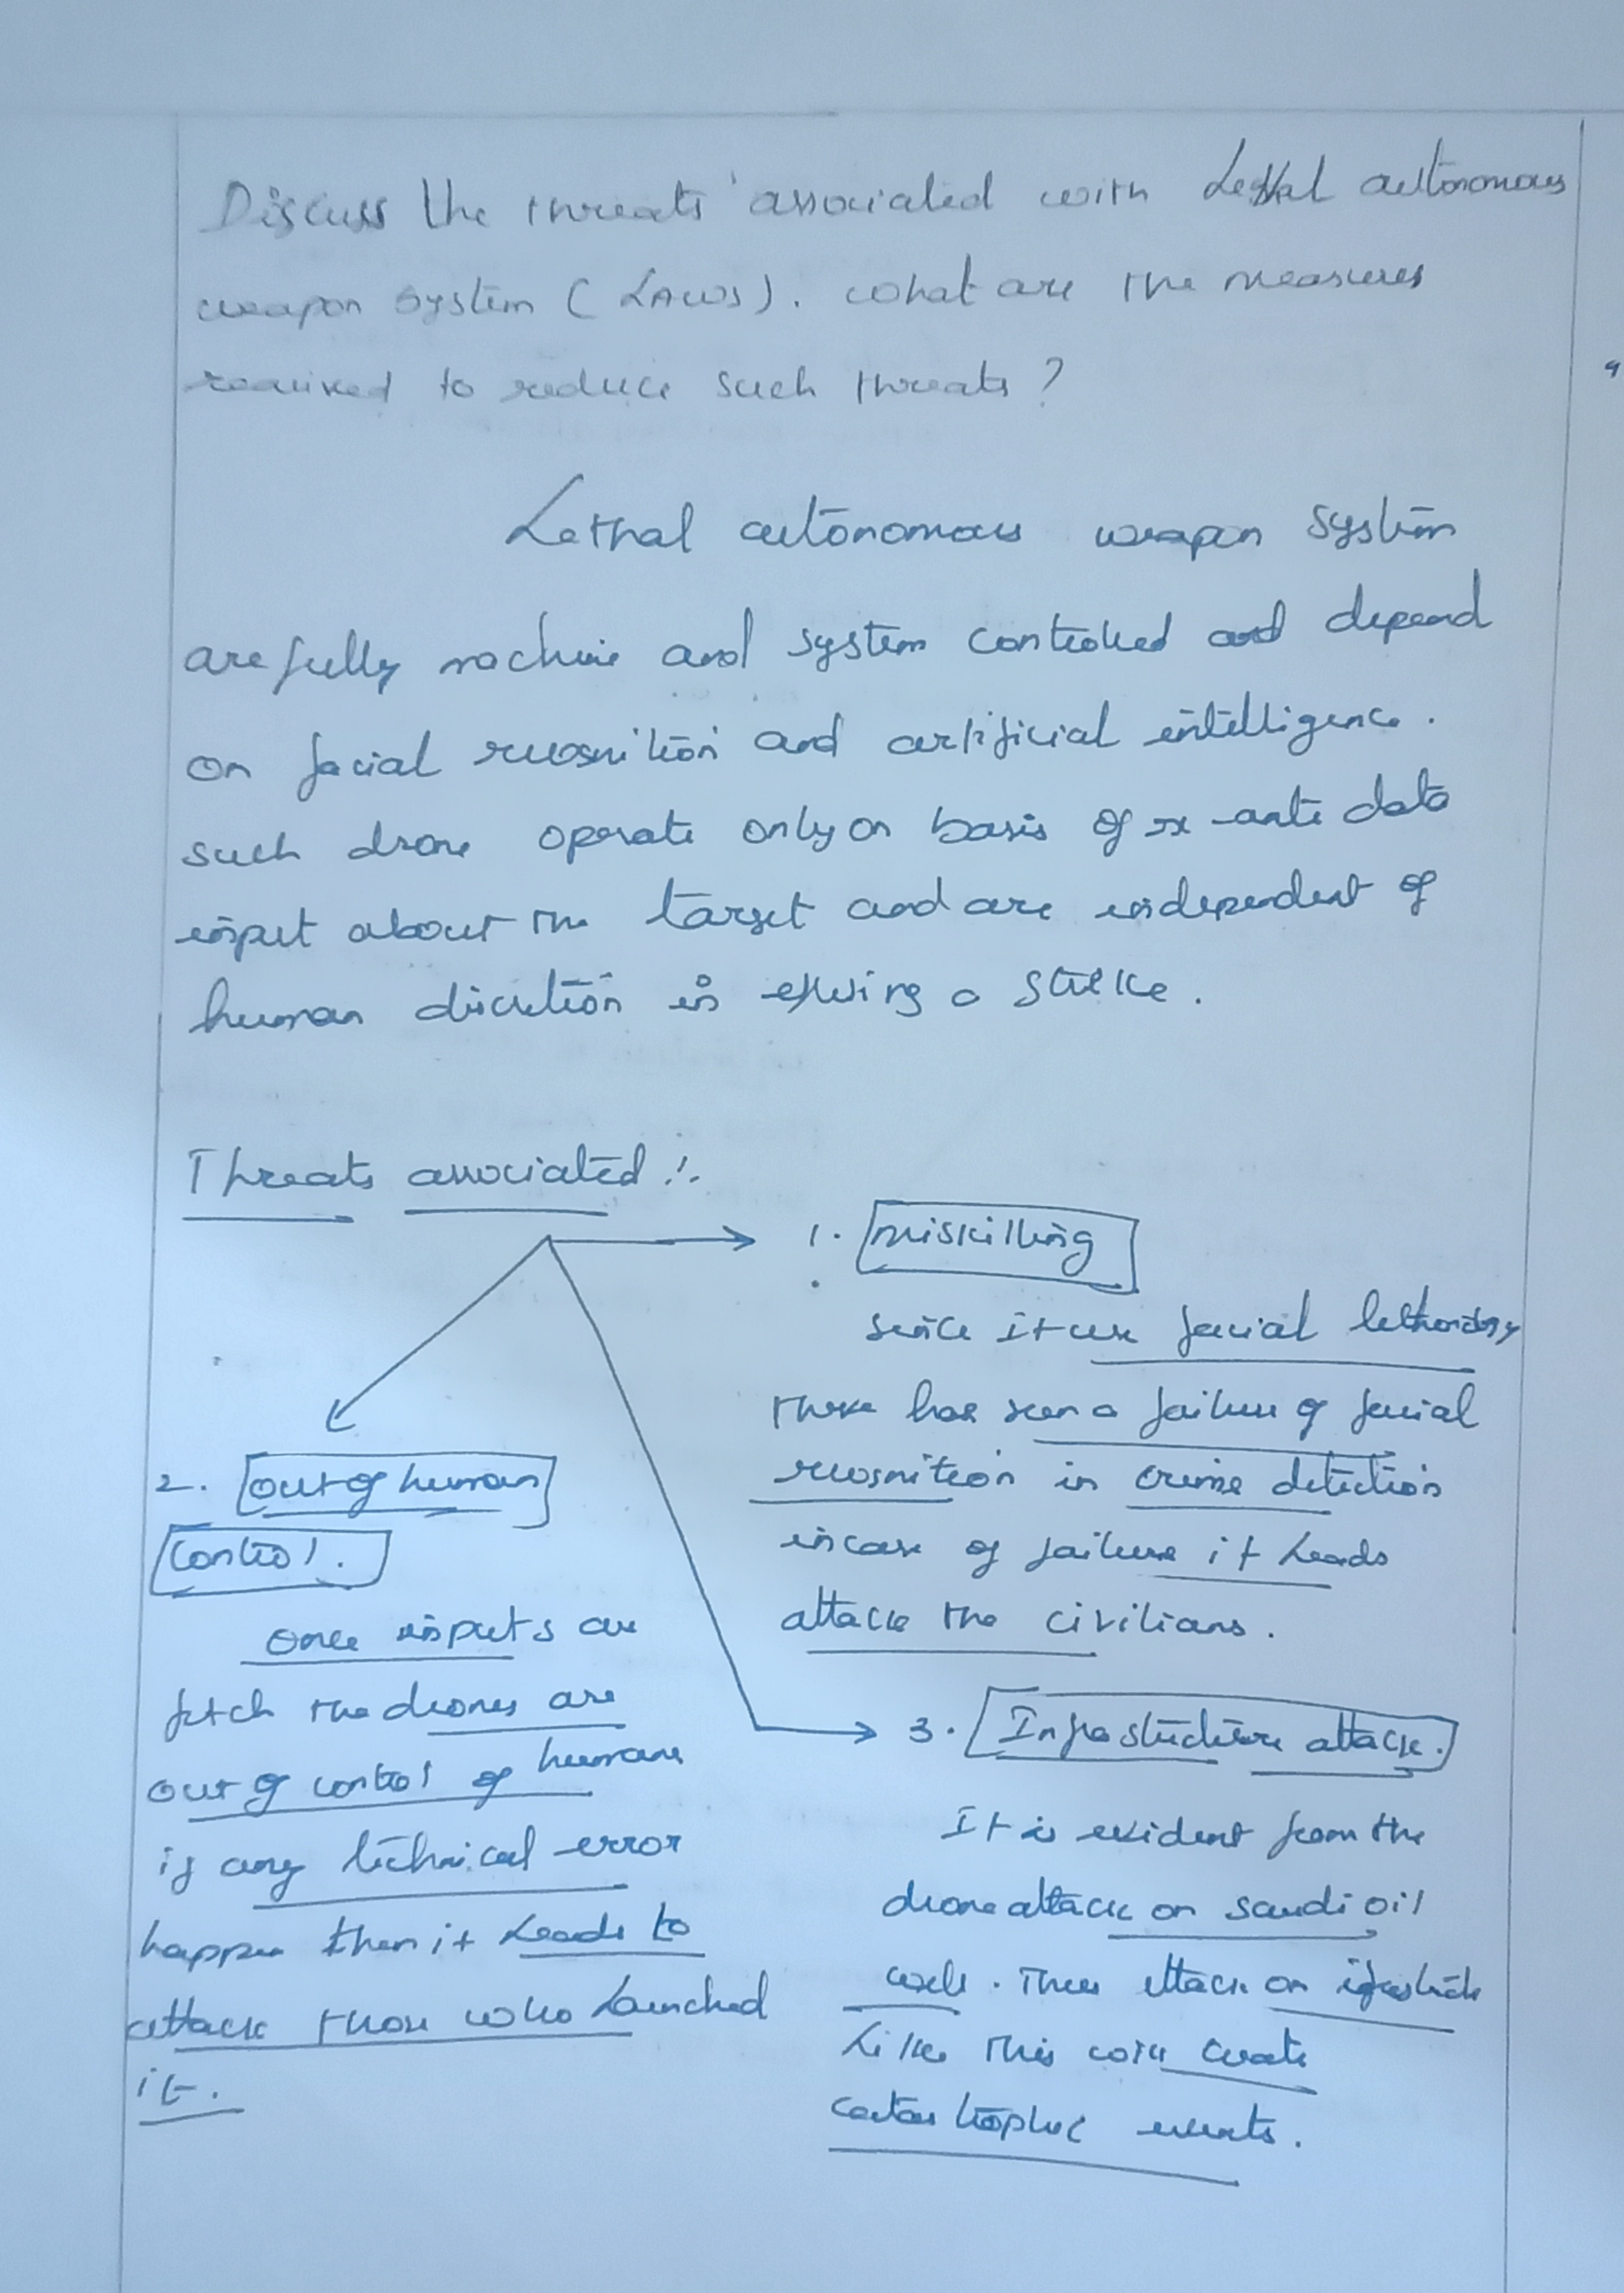 Discuss the threats associated with Lethal autonomous
weapon system (LAWS). What are the measures
required to reduce such threats?
Lethal autonomous weapon system
are fully machine and system controlled and depend
on facial recognition and artificial intelligence.
such drone operate only on basis of ex-ante data
input about the target and are independent of
human discretion in a strike.
Threats associated :-
1. miskilling
since it use facial
there has seen a failure of facial
recognition in crime detection
incase of failure it leads
attack the civilians.
2. out of human
control.
once inputs are
fetch the drones are
out of control of humans
if any technical error
happen then it leads to
attack those who launched
it.
3. Infrastructure attack.
It is evident from the
drone attack on saudi oil
wells. Thus attack on
like this will create
catastrophic events.